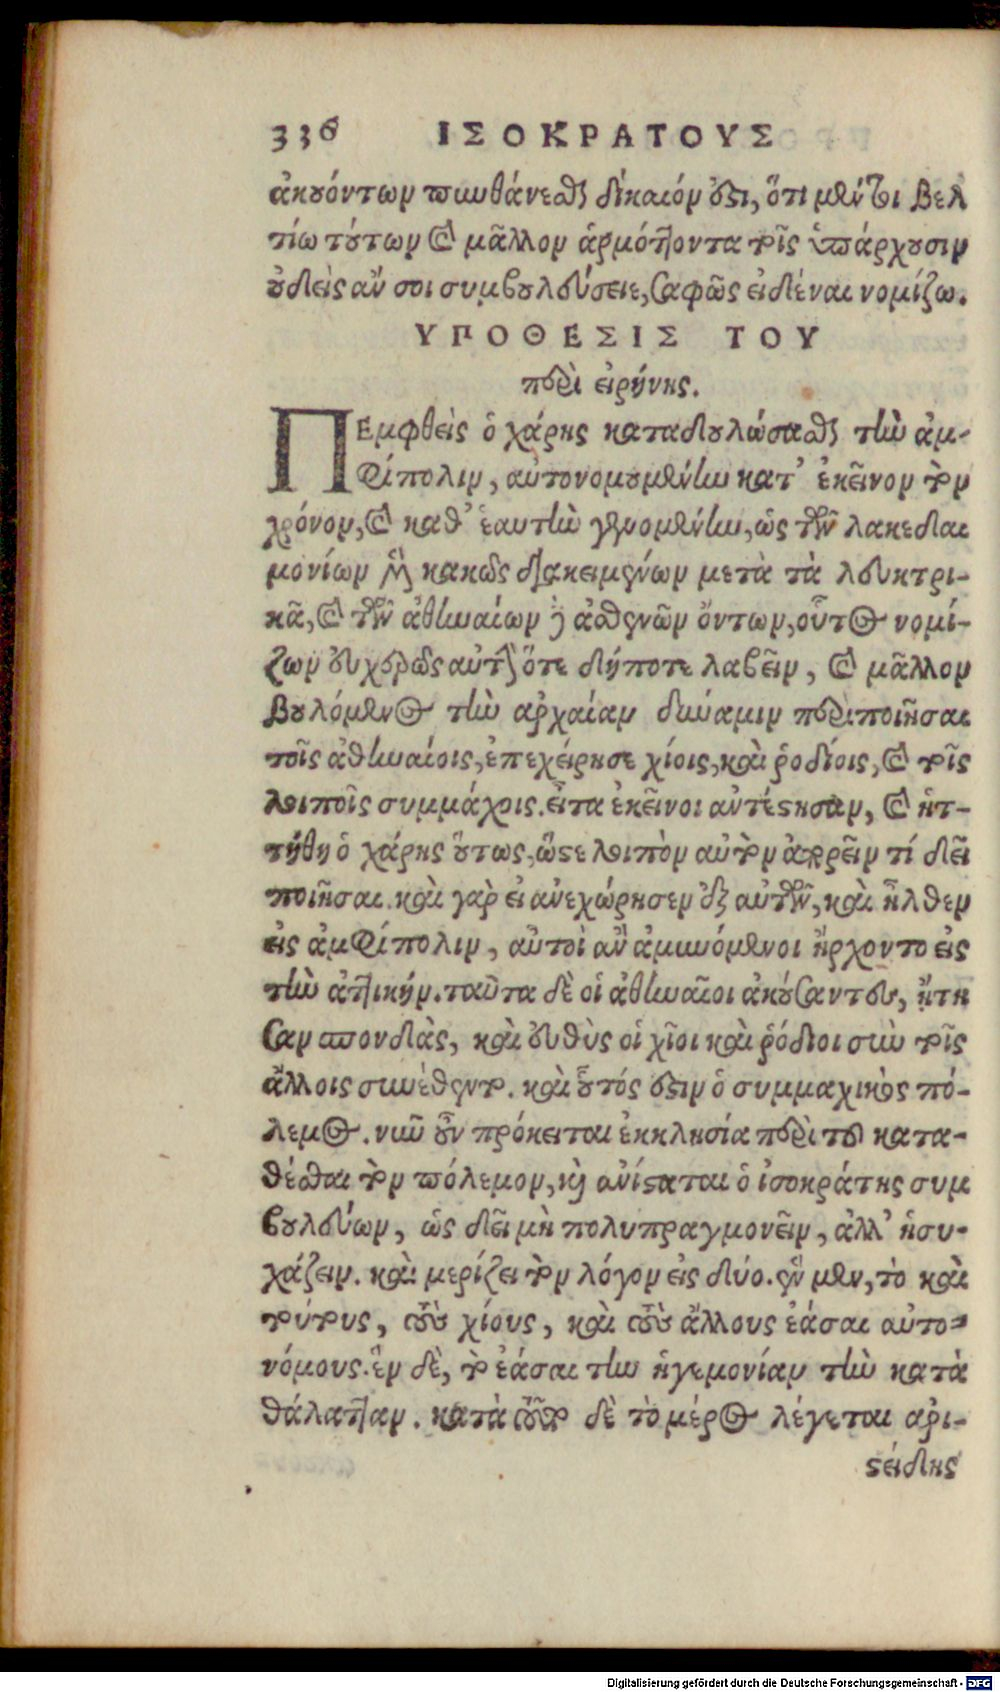 336 ΙΣΟΚΡΑΤΟΥΣ
ἀκουόντων πυνθάνεσθαι δίκαιόν ἐστι, ὅτι μέντοι βελ
τίω τούτων καὶ μᾶλλον ἁρμόττοντα τοῖς ὑπάρχουσιν
οὐδεὶς ἄν σοι συμβουλεύσειε, σαφῶς εἰδέναι νομίζω.
ΥΠΟΘΕΣΙΣ ΤΟΥ
περὶ εἰρήνης.
ΠΕμφθεὶς ὁ χάρης καταδουλώσασθαι τὴν ἀμ-
φίπολιν, αὐτονομουμένην κατ' ἐκεῖνον τὸν
χρόνον, καὶ καθ' ἑαυτὴν γενομένην, ὡς τῶν λακεδαι
μονίων ἢ κακῶς διακειμένων μετὰ τὰ λευκτρι-
κᾶ, καὶ τῶν ἀθηναίων δὲ ἀσθενῶν ὄντων, οὗτος νομί-
ζων εὐχερῶς αὐτὴν ὅτε δήποτε λαβεῖν, καὶ μᾶλλον
βουλόμενος τὴν ἀρχαίαν δύναμιν περιποιῆσαι
τοῖς ἀθηναίοις, ἐπεχείρησε χίοις, καὶ ῥοδίοις, καὶ τοῖς
λοιποῖς συμμάχοις. εἶτα ἐκεῖνοι ἀντέστησαν, καὶ ἡτ-
τήθη ὁ χάρης οὕτως, ὥστε λοιπὸν αὐτὸν ἀπορεῖν τί δεῖ
ποιῆσαι. καὶ γὰρ εἰ ἀνεχώρησεν ἐξ αὐτῶν, καὶ ἦλθεν
εἰς ἀμφίπολιν, αὐτοὶ ἂν ἀμυνόμενοι ἤρχοντο εἰς
τὴν ἀττικήν. ταῦτα δὲ οἱ ἀθηναῖοι ἀκούσαντες, ᾔτη
σαν σπονδὰς, καὶ εὐθὺς οἱ χῖοι καὶ ῥόδιοι σὺν τοῖς
ἄλλοις συνέθεντο. καὶ οὗτός ἐστιν ὁ συμμαχικὸς πό-
λεμος. νῦν οὖν πρόκειται ἐκκλησία περὶ τοῦ κατα-
θέσθαι τὸν πόλεμον, καὶ ἀνίσταται ὁ ἰσοκράτης συμ
βουλεύων, ὡς δεῖ μὴ πολυπραγμονεῖν, ἀλλ' ἡσυ-
χάζειν. καὶ μερίζει τὸν λόγον εἰς δύο. ἓν μὲν, τὸ καὶ
τούτους, τοὺς χίους, καὶ τοὺς ἄλλους ἐάσαι αὐτο-
νόμους. ἓν δὲ, τὸ ἐάσαι τὴν ἡγεμονίαν τὴν κατὰ
θάλατταν. κατὰ τοῦτο δὲ τὸ μέρος λέγεται ἀρι-
στείδης
Digitalisierung gefördert durch die Deutsche Forschungsgemeinschaft - DFG